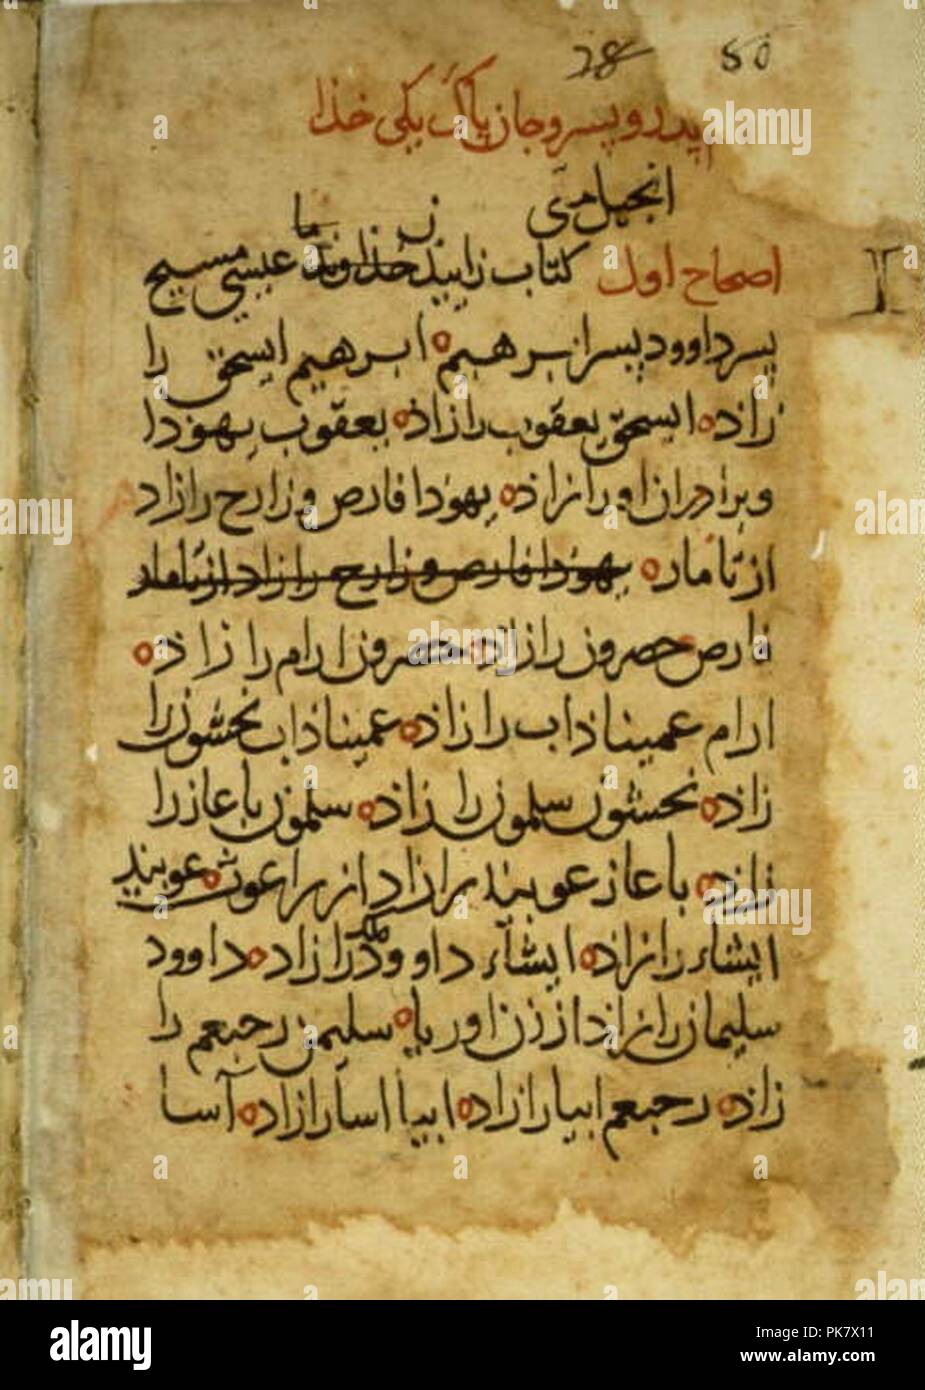 28 50
پدر و پسر و جان پاک یکی خذا
انجیل متی
اصحاح اول کتاب زایید خذاوند ما عیسی مسیح
پسر داوود پسر ابرهیم ابرهیم ایسحق را
زاذه ایسحق یعقوب را زاذه یعقوب یهوذا
وبراذران اورا زاذه یهوذا فارص و زارح را زاد
از تامار یهوذا فارص و زارح را زاد از تامار
فارص حصرون را زاذه حصرون ارام را زاذه
ارام عمیناذاب را زاذه عمیناذاب نحشون را
زاذه نحشون سلمون را زاذه سلمون باعاز را
زاذه باعاز عوبید را زاد از راعوث عوبید
ایشاء را زاذه ایشاء داوود را زاذه داوود
سلیمان را زاد از زن اوریا سلیمن رحبعم را
زاذه رحبعم ابیا را زاذه ابیا اسا را زاذه آسا
alamy
PK7X11
www.alamy.com